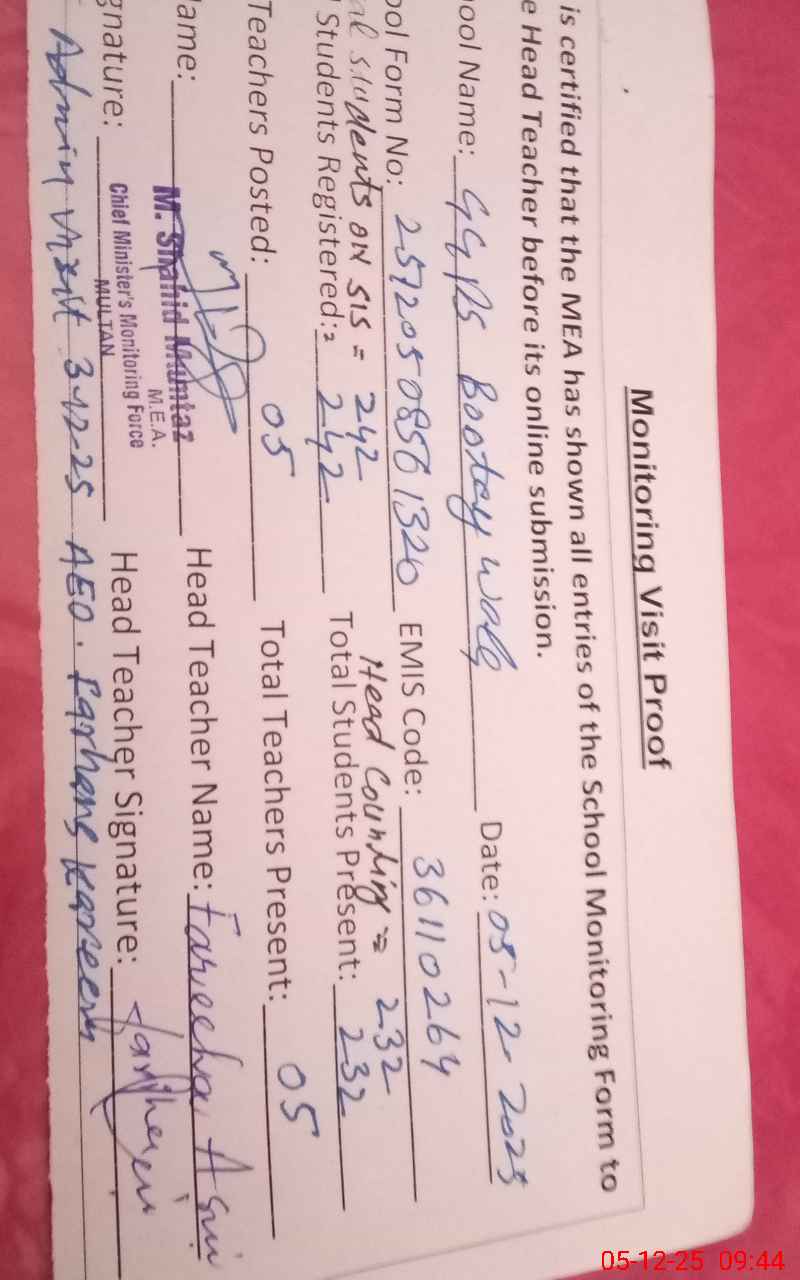 Monitoring Visit Proof
is certified that the MEA has shown all entries of the School Monitoring Form to
e Head Teacher before its online submission.
ool Name: GGPS Bootay wala Date: 05-12-2025
ool Form No: 2572050856 1320 EMIS Code: 36110264
al students on SIS = 242 Head Counting = 232
Students Registered: 242 Total Students Present: 232
Teachers Posted: 05 Total Teachers Present: 05
ame: M. Shahid Mumtaz Head Teacher Name: Fareeha Asim
M.E.A.
gnature: Chief Minister's Monitoring Force Head Teacher Signature:
MULTAN
Admin visit 3-12-25 AEO. Farhana kareem
05-12-25 09:44